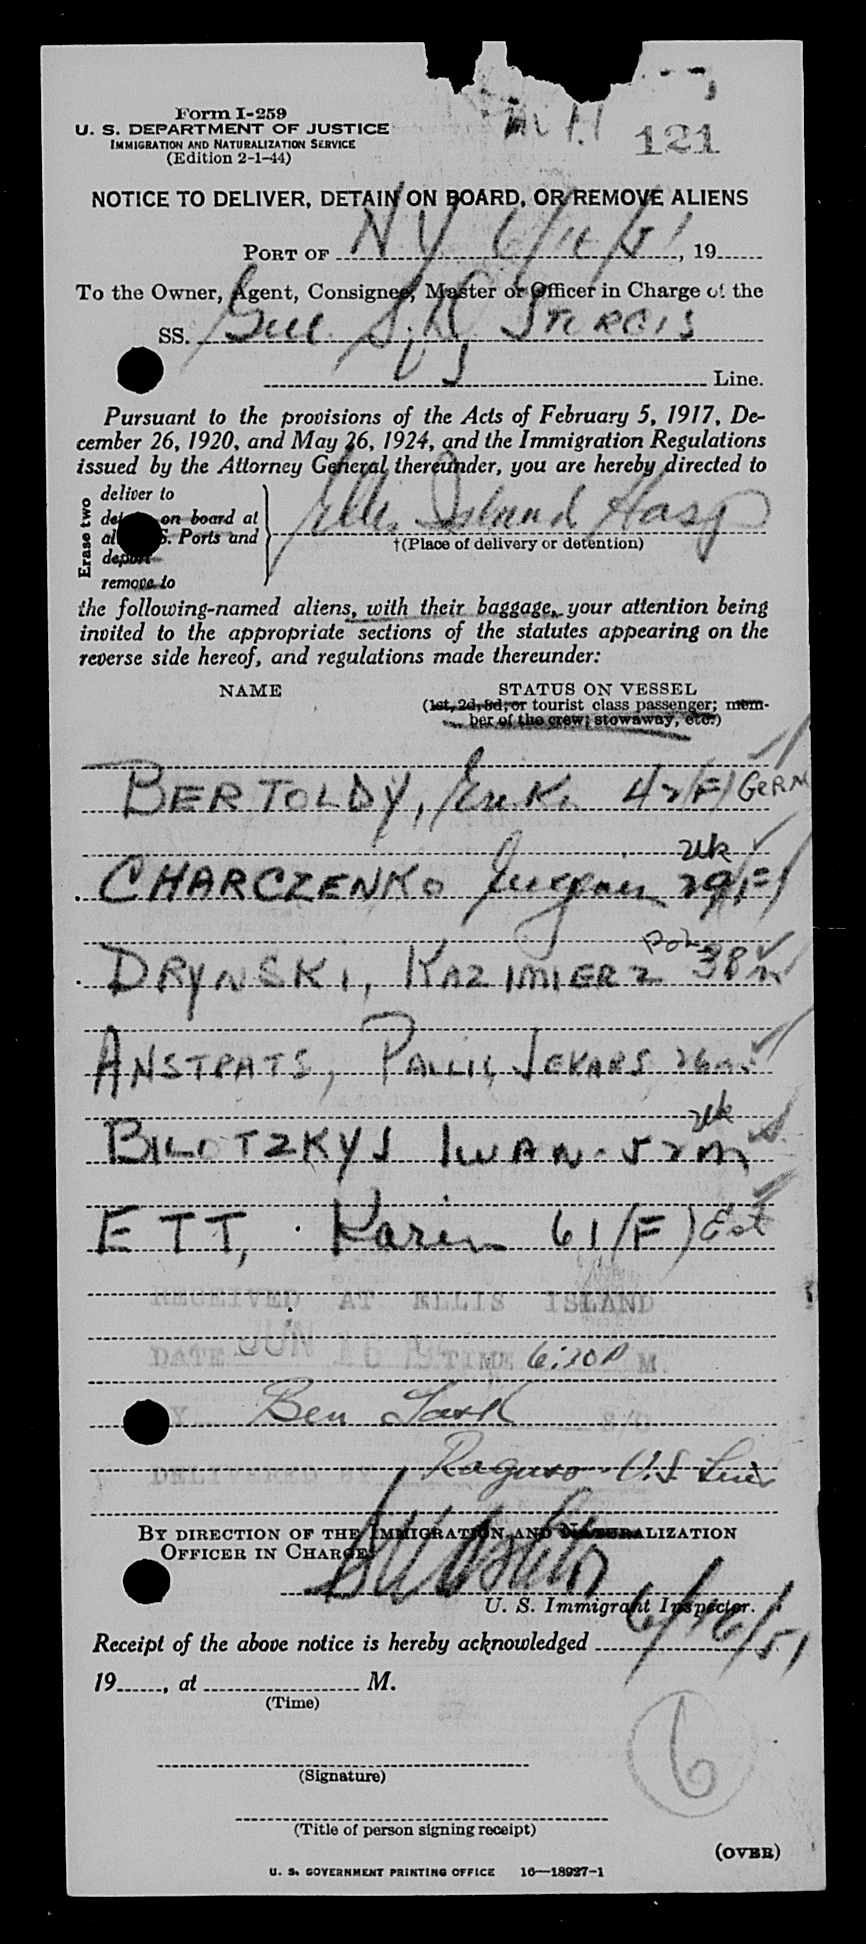 121
Form I-259
U. S. DEPARTMENT OF JUSTICE
IMMIGRATION AND NATURALIZATION SERVICE
(Edition 2-1-44)
NOTICE TO DELIVER, DETAIN ON BOARD, OR REMOVE ALIENS
PORT OF NY 6/16/51, 19
To the Owner, Agent, Consignee, Master or Officer in Charge of the
SS. Gul. S. D. STURGIS
US Line.
Pursuant to the provisions of the Acts of February 5, 1917, De-
cember 26, 1920, and May 26, 1924, and the Immigration Regulations
issued by the Attorney General thereunder, you are hereby directed to
Erase two
deliver to
on board at
S. Ports and
remove to
Ellis Island Hosp
†(Place of delivery or detention)
the following-named aliens, with their baggage, your attention being
invited to the appropriate sections of the statutes appearing on the
reverse side hereof, and regulations made thereunder:
NAME
STATUS ON VESSEL
(1st, 2d, 3d, or tourist class passenger; mem-
ber of the crew; stowaway, etc.)
BERTOLDY, Erik. 42(F) GERM
Uk
CHARCZENKO 29(F)
Pol
DRYNSKI, KAZIMIERZ 38 m
ANSTRATS, JEKABS 26 m
Uk
BILOTZKYJ IWAN. 52 m
ETT, Karin 61 (F) Est
RECEIVED AT ELLIS ISLAND
DATE JUN 16 TIME 6:20 P M.
Ben S/G
DELIVERED BY Raguso U.S. Lines
BY DIRECTION OF THE IMMIGRATION AND NATURALIZATION
OFFICER IN CHARGE
U. S. Immigrant Inspector.
Receipt of the above notice is hereby acknowledged 6/16/51
19, at M.
(Time)
6
(Signature)
(Title of person signing receipt)
(OVER)
U. S. GOVERNMENT PRINTING OFFICE 16—18927-1